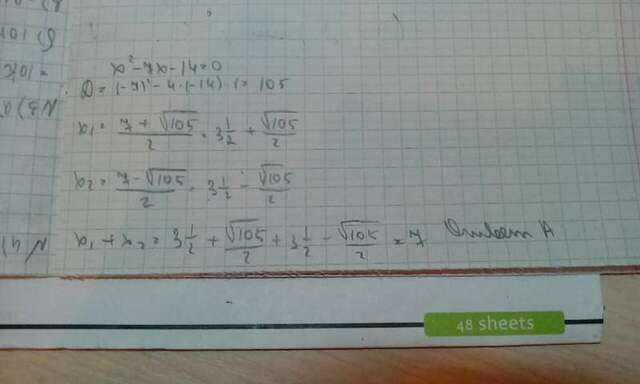 x² - 7x - 14 = 0
D = (-7)² - 4·(-14)·1 = 105
x₁ = (7 + √105)/2 = 3 1/2 + √105/2
x₂ = (7 - √105)/2 = 3 1/2 - √105/2
x₁ + x₂ = 3 1/2 + √105/2 + 3 1/2 - √105/2 = 7 Ответ А
N 4)
48 sheets